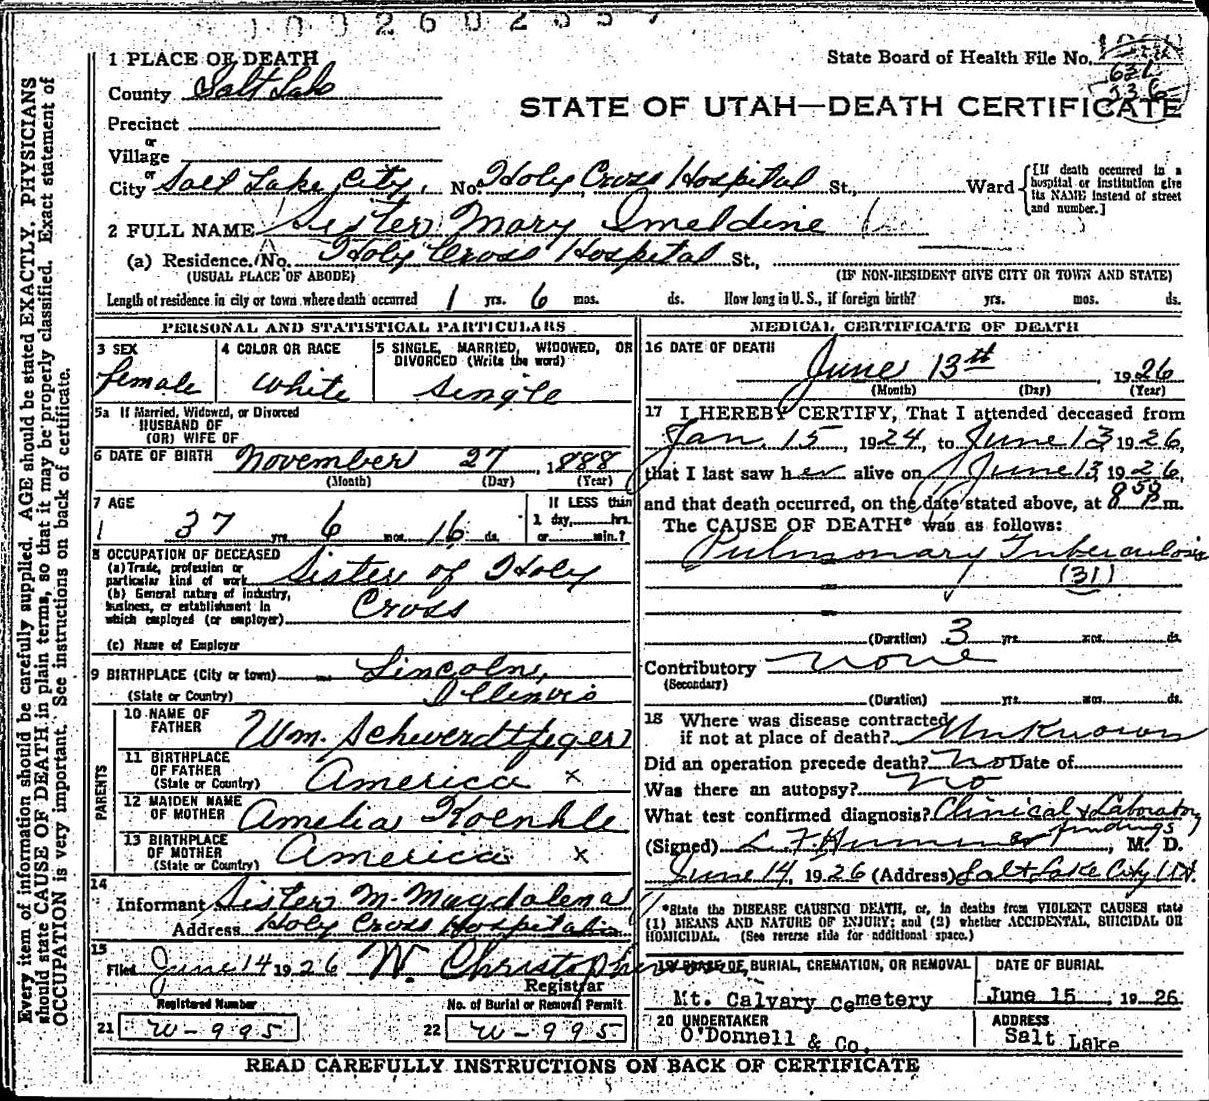 1 PLACE OF DEATH
State Board of Health File No.
County Salt Lake
STATE OF UTAH—DEATH CERTIFICATE
Precinct
or
Village
or
City Salt Lake City, No. Holy Cross Hospital St., Ward
[If death occurred in a hospital or institution give its NAME instead of street and number.]
2 FULL NAME Sister Mary Imeldine
(a) Residence. No. Holy Cross Hospital St.,
(USUAL PLACE OF ABODE) (IF NON-RESIDENT GIVE CITY OR TOWN AND STATE)
Length of residence in city or town where death occurred 1 yrs. 6 mos. ds. How long in U. S., if foreign birth? yrs. mos. ds.
PERSONAL AND STATISTICAL PARTICULARS
3 SEX
female
4 COLOR OR RACE
White
5 SINGLE, MARRIED, WIDOWED, OR
DIVORCED (Write the word)
Single
5a If Married, Widowed, or Divorced
HUSBAND OF
(OR) WIFE OF
6 DATE OF BIRTH November 27, 1888
(Month) (Day) (Year)
7 AGE
37 yrs. 6 mos. 16 ds.
If LESS than
1 day, hrs.
or min.?
8 OCCUPATION OF DECEASED
(a) Trade, profession or
particular kind of work Sister of Holy
(b) General nature of industry,
business, or establishment in
which employed (or employer) Cross
(c) Name of Employer
9 BIRTHPLACE (City or town) Lincoln,
(State or Country) Illinois
PARENTS
10 NAME OF
FATHER Wm. Schwerdtfeger
11 BIRTHPLACE
OF FATHER
(State or Country) America x
12 MAIDEN NAME
OF MOTHER Amelia Koenhle
13 BIRTHPLACE
OF MOTHER
(State or Country) America x
14
Informant Sister M. Magdalena
Address Holy Cross Hospital
15
Filed June 14 1926 W. Christopherson
Registrar
Registered Number No. of Burial or Removal Permit
21 W-995 22 W-995
MEDICAL CERTIFICATE OF DEATH
16 DATE OF DEATH
June 13th 1926
(Month) (Day) (Year)
17 I HEREBY CERTIFY, That I attended deceased from
Jan. 15, 1924, to June 13 1926,
that I last saw her alive on June 13, 1926,
and that death occurred, on the date stated above, at m.
The CAUSE OF DEATH* was as follows:
Pulmonary Tuberculosis
(31)
(Duration) 3 yrs. mos. ds.
Contributory None
(Secondary)
(Duration) yrs. mos. ds.
18 Where was disease contracted
if not at place of death? Unknown
Did an operation precede death? No Date of
Was there an autopsy? No
What test confirmed diagnosis? Clinical & Laboratory
findings
(Signed) L. F. Hummer, M. D.
June 14, 1926 (Address) Salt Lake City Ut.
*State the DISEASE CAUSING DEATH, or, in deaths from VIOLENT CAUSES state
(1) MEANS AND NATURE OF INJURY; and (2) whether ACCIDENTAL, SUICIDAL OR
HOMICIDAL. (See reverse side for additional space.)
19 PLACE OF BURIAL, CREMATION, OR REMOVAL DATE OF BURIAL
Mt. Calvary Cemetery June 15, 1926
20 UNDERTAKER ADDRESS
O'Donnell & Co. Salt Lake
READ CAREFULLY INSTRUCTIONS ON BACK OF CERTIFICATE
Every item of information should be carefully supplied. AGE should be stated EXACTLY. PHYSICIANS
should state CAUSE OF DEATH in plain terms, so that it may be properly classified. Exact statement of
OCCUPATION is very important. See instructions on back of certificate.